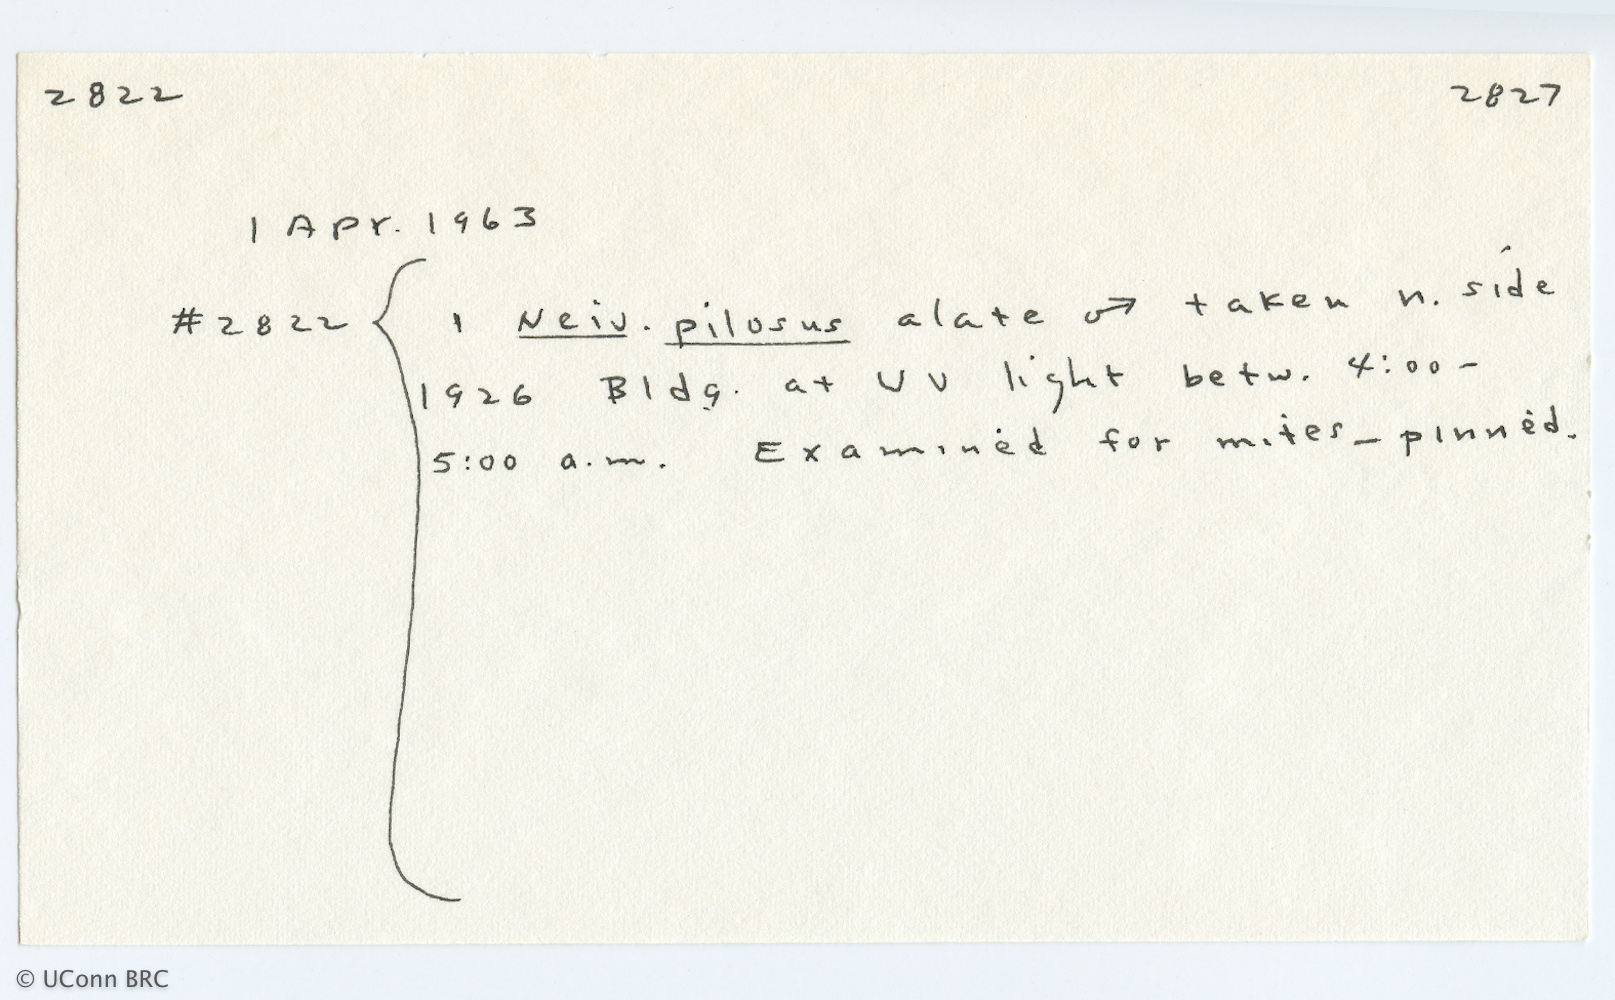 2822 2827
1 Apr. 1963
#2822 { 1 Neiv. pilosus alate ♂ taken n. side
1926 Bldg. at UV light betw. 4:00-
5:00 a.m. Examined for mites - pinned.
© UConn BRC